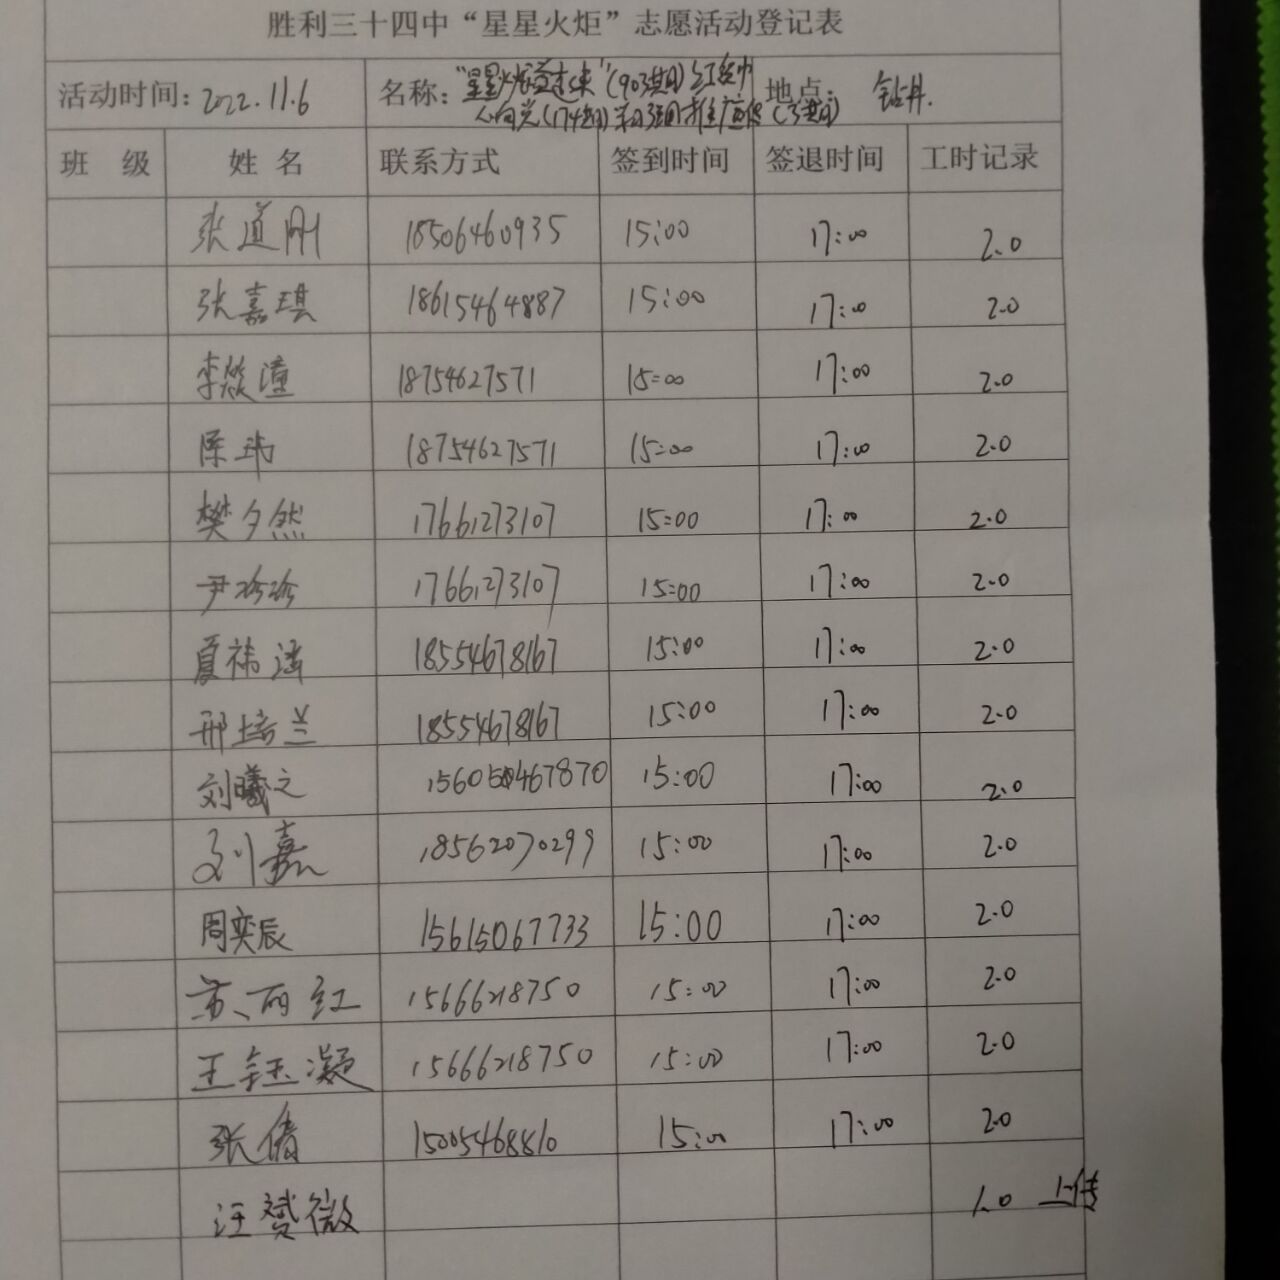 胜利三十四中“星星火炬”志愿活动登记表
活动时间: 2022.11.6 名称: 地点: 钻井.
班 级 姓 名 联系方式 签到时间 签退时间 工时记录
张道刚 18506460935 15:00 17:00 2.0
张嘉琪 18615464887 15:00 17:00 2.0
李焱潼 18754627571 15:00 17:00 2.0
陈玮 18754627571 15:00 17:00 2.0
樊夕然 17661273107 15:00 17:00 2.0
尹珍珍 17661273107 15:00 17:00 2.0
夏祎 18554678167 15:00 17:00 2.0
邢培兰 18554678167 15:00 17:00 2.0
刘曦之 15:00 17:00 2.0
刘嘉 18562070299 15:00 17:00 2.0
周奕辰 15615067733 15:00 17:00 2.0
苏丽红 15666218750 15:00 17:00 2.0
王钰凝 15666218750 15:00 17:00 2.0
张倩 15005468810 15:00 17:00 2.0
汪赟微 1.0 上传